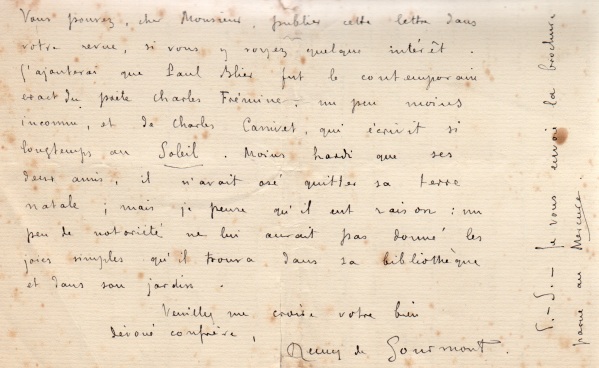 Vous pouvez, cher Monsieur, publier cette lettre dans
votre revue, si vous y voyez quelque intérêt.
J'ajouterai que Paul Blier fut le contemporain
exact du poète Charles Frémine, un peu moins
inconnu, et de Charles Canivet, qui écrivit si
longtemps au Soleil. Moins hardi que ses
deux amis, il n'avait osé quitter sa terre
natale ; mais je pense qu'il eut raison : un
peu de notoriété ne lui aurait pas donné les
joies simples qu'il trouva dans sa bibliothèque
et dans son jardin.
Veuillez me croire votre bien
dévoué confrère,
Remy de Gourmont.
P.-S. – Je vous envoie la brochure
parue au Mercure.